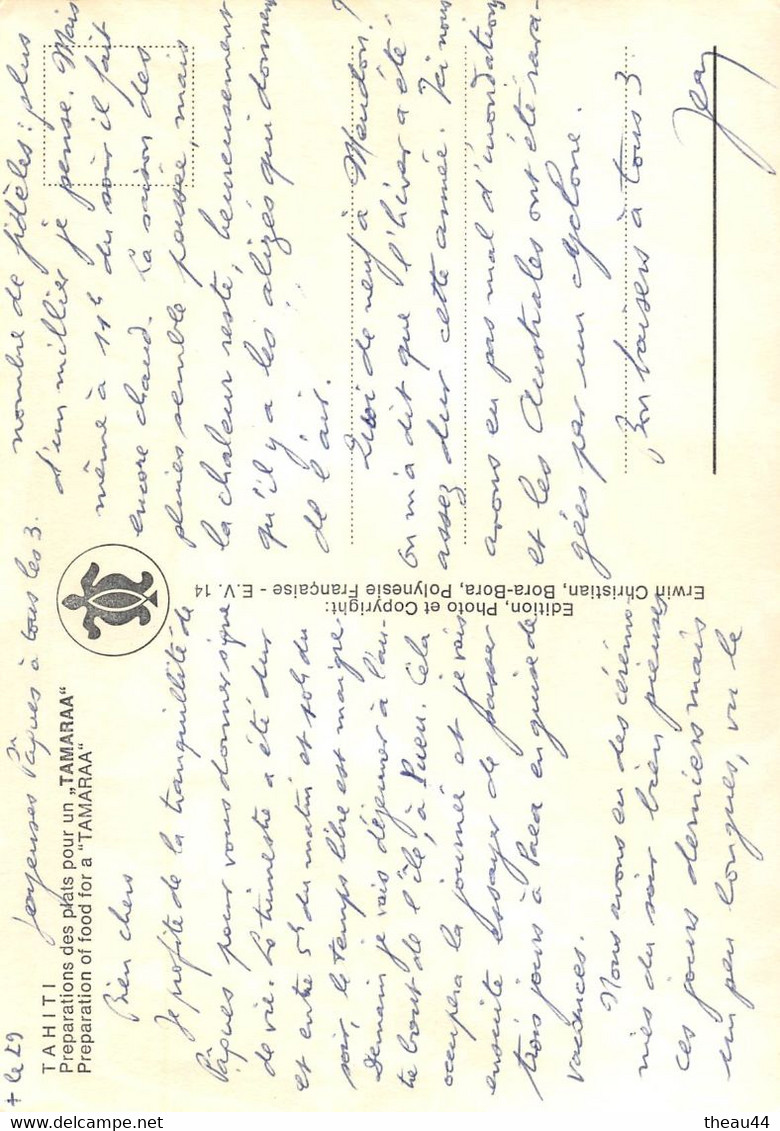 + le 29
Joyeuses Pâques à tous les 3.
TAHITI
Preparations des plats pour un „TAMARAA“
Preparation of food for a “TAMARAA“
Bien chers
Je profite de la tranquillité de
Pâques pour vous donner signe
de vie. Le trimestre a été dur
et entre 5h du matin et 10h du
soir, le temps libre est maigre.
Demain je vais déjeuner à l'au-
tre bout de l'île, à Pueu. Cela
occupera la journée et je vais
ensuite essayer de passer
trois jours à Paea en guise de
vacances.
Nous avons eu des cérémo-
nies du soir bien pieuses
ces jours derniers mais
un peu longues, vu le
Edition, Photo et Copyright:
Erwin Christian, Bora-Bora, Polynesie Française - E.V. 14
nombre de fidèles: plus
d'un millier je pense. Mais
même à 11h du soir il fait
encore chaud. La saison des
pluies semble passée, mais
la chaleur reste, heureusement
qu'il y a les alizés qui donnent
de l'air.
Quoi de neuf à Meudon?
On m'a dit que l'hiver a été
assez dur cette année. Ici nous
avons eu pas mal d'inondations
et les Australes ont été rava-
gées par un cyclone.
Bon baisers à tous 3
Jean
theau44